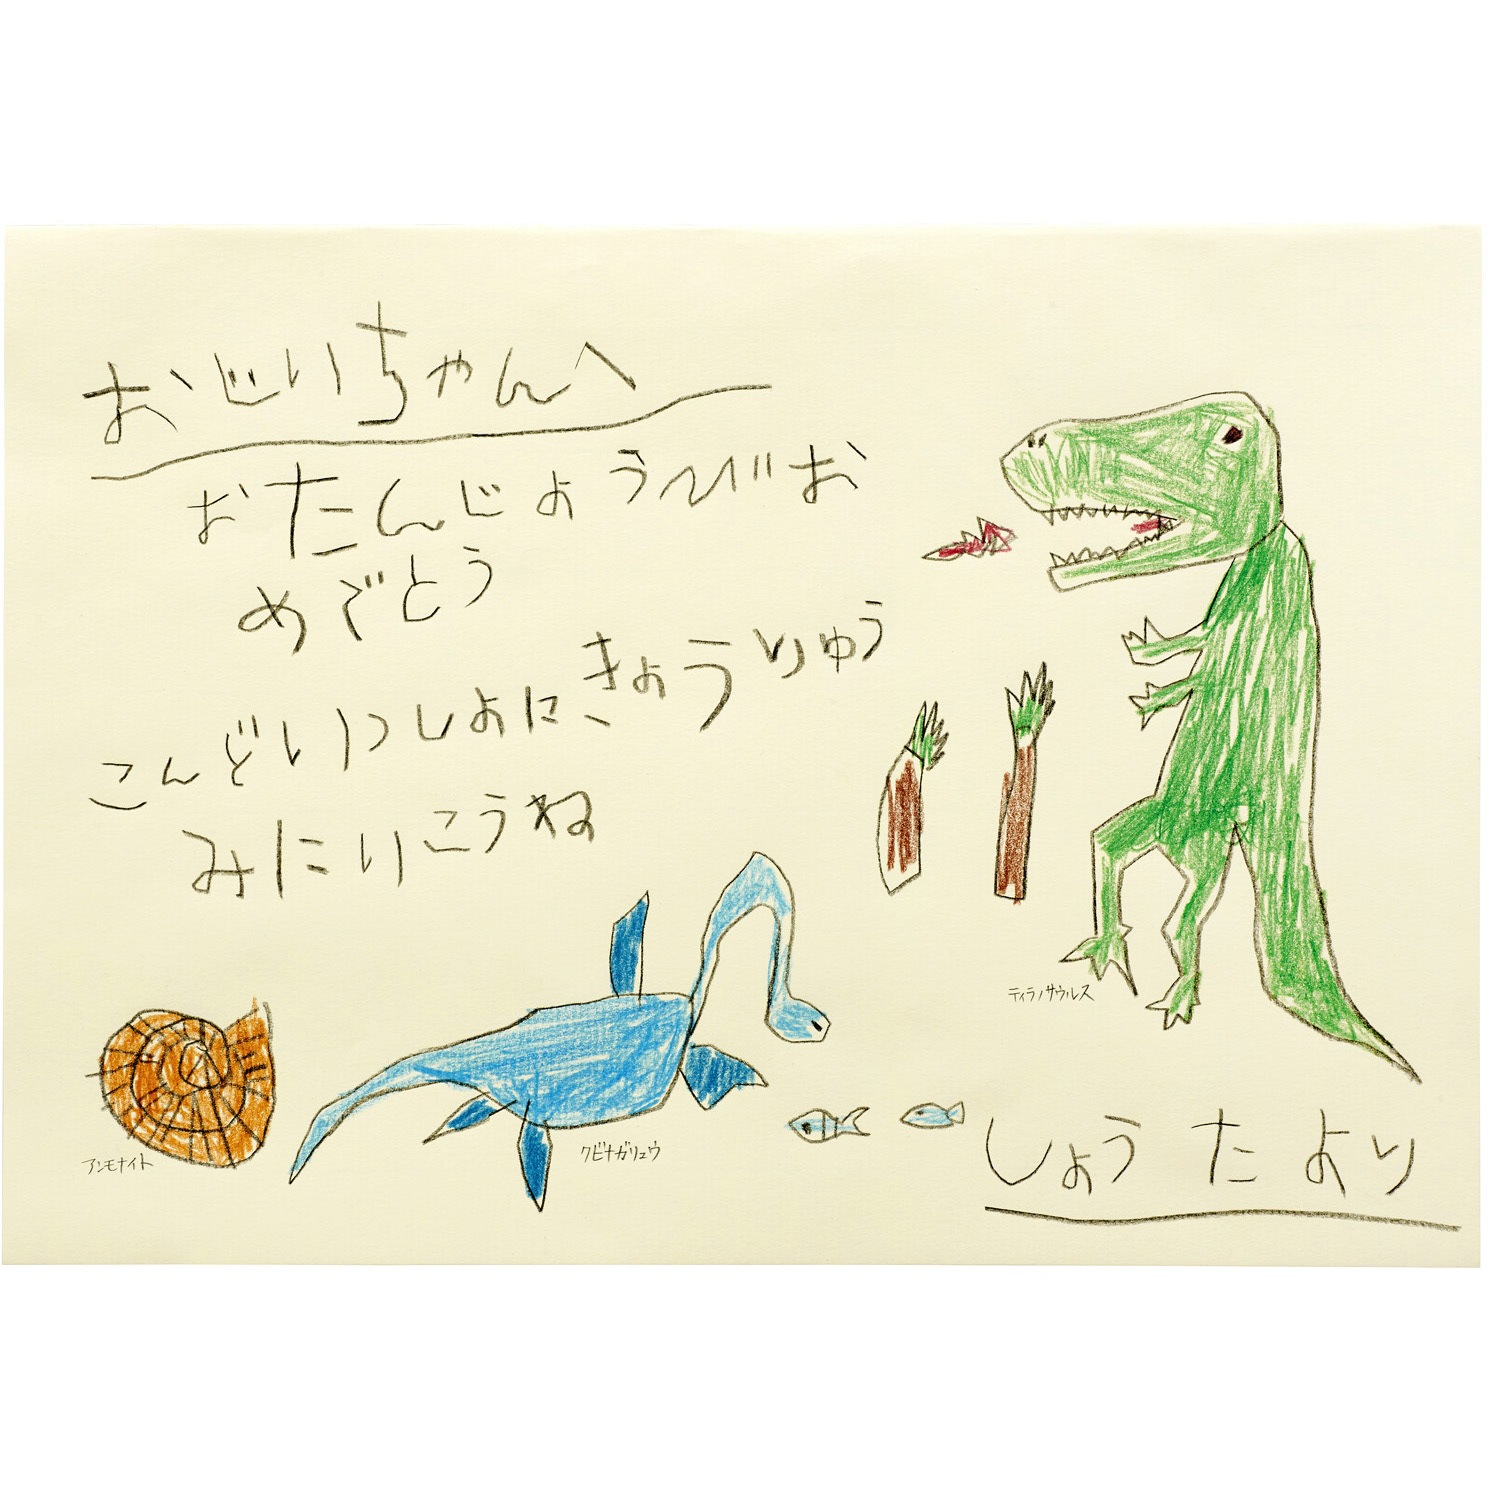 おじいちゃんへ
おたんじょうびお
めでとう
こんどいっしょに、きょうりゅう
みにいこうね
ティラノサウルス
アンモナイト
クビナガリュウ
しょうたより